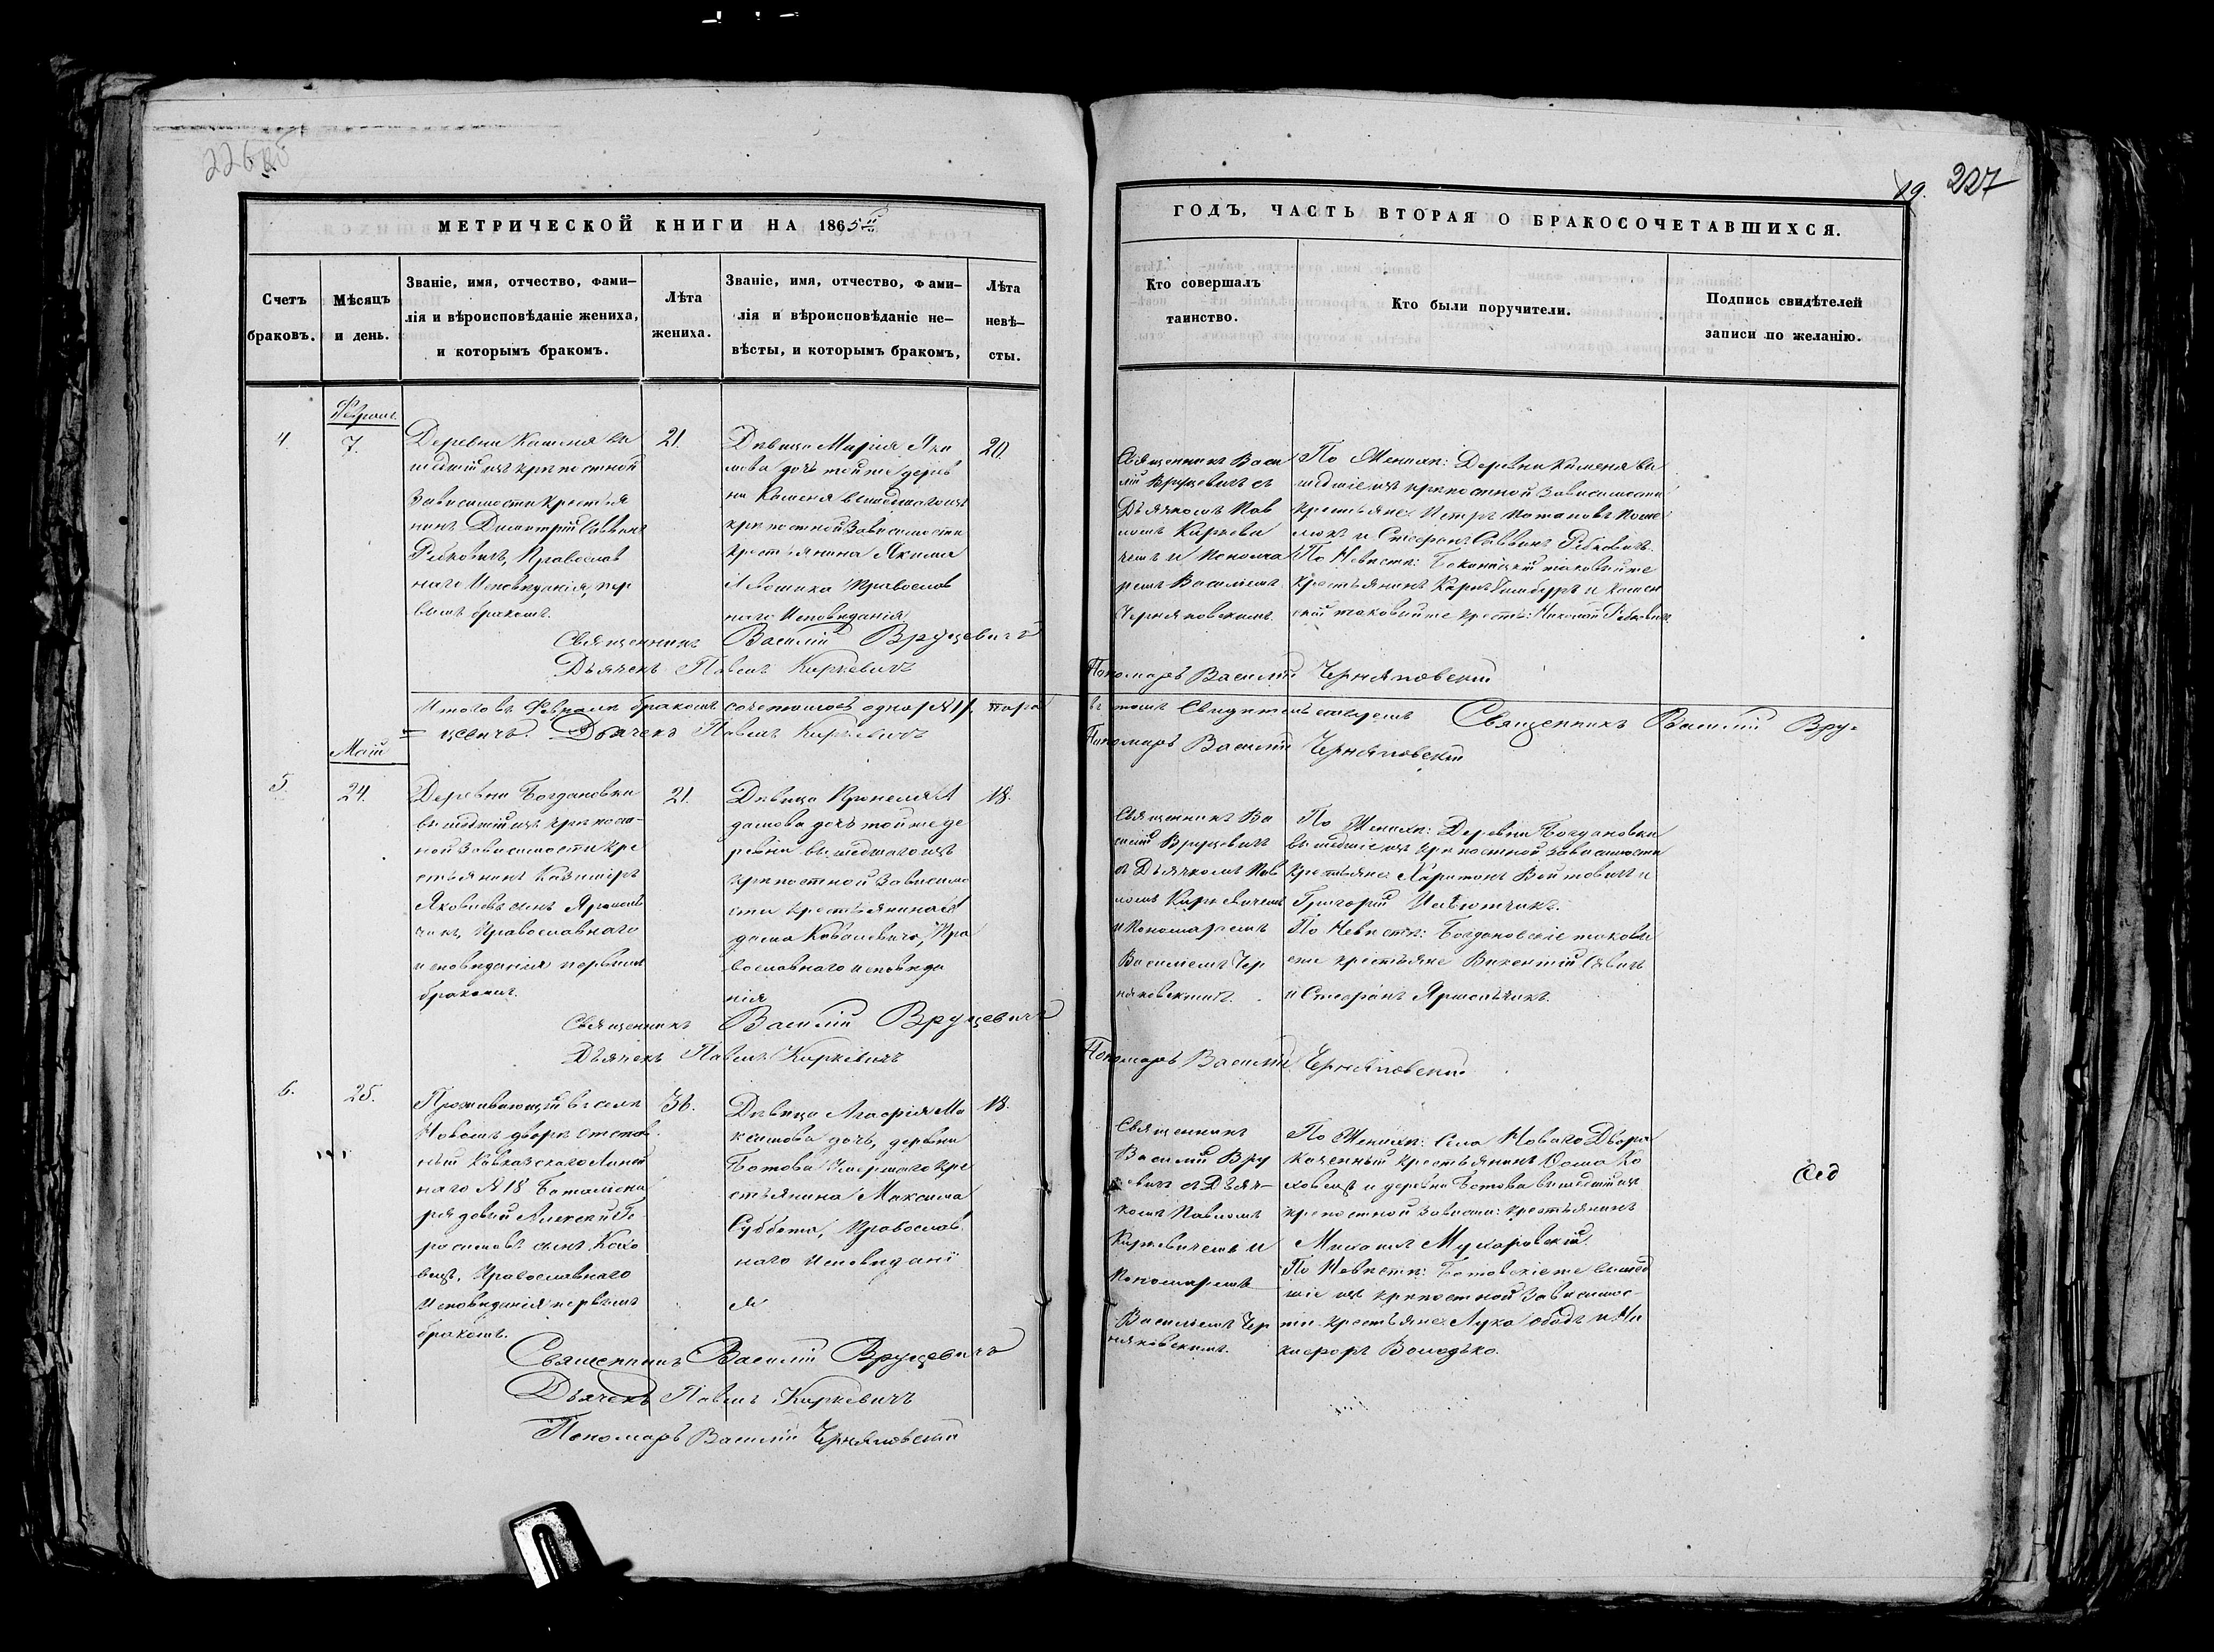 226 об
19. 227
МЕТРИЧЕСКОЙ КНИГИ НА 1865й
ГОДЪ, ЧАСТЬ ВТОРАЯ О БРАКОСОЧЕТАВШИХСЯ.
Счетъ
браковъ.
Мѣсяцъ
и день.
Званіе, имя, отчество, фами-
лія и вѣроисповѣданіе жениха,
и которымъ бракомъ.
Лѣта
жениха.
Званіе, имя, отчество, фами-
лія и вѣроисповѣданіе не-
вѣсты, и которымъ бракомъ,
Лѣта
невѣ-
сты.
Кто совершалъ
таинство.
Кто были поручители.
Подпись свидѣтелей
записи по желанію.
4.
7.
Деревни Каменя вы
шедшій изъ крѣпостной
зависимости крестья
нинъ Димитрій Саввинъ
Рабковичъ, Православ
наго Исповѣданія, пер
вымъ бракомъ.
21.
Дѣвица Марія Яки
мова дочь тойже дерев
ни Каменя вышедшаго изъ
крѣпостной зависимости
крестьянина Якима
Православ
наго Исповѣданія
20.
Священникъ Васи
лій Вруцевичъ съ
Дьячкомъ Пав
ломъ Киркеви
чемъ и Пономa
ремъ Василіемъ
Черняковскимъ.
По Женихѣ: Деревни Каменя вы
шедшіе изъ крѣпостной зависимости
крестьяне Петръ Потаповъ
и Стефанъ Саввинъ Рабковичъ.
По Невѣстѣ: таковыйже
крестьянинъ Карпъ и Камен
скій таковыйже крестья: Николай Рабковичъ
Священникъ Василій Вруцевичъ
Дьячекъ Павелъ Киркевичъ
Пономарь Василій Черняковскій
Итого въ Февралѣ бракомъ сочеталось одна /№1/. пара
въ томъ свидѣтельствуемъ Священникъ Василій Вру-
цевичъ. Дьячекъ Павелъ Киркевичъ
Пономарь Василій Черняковскій
Май
5.
24.
Деревни Богдановки
вышедшій изъ крѣпост-
ной зависимости кре
стьянинъ Казиміръ
Яковлевъ сынъ Ярмоль
чикъ, Православнаго
исповѣданія первымъ
бракомъ.
21.
Дѣвица А
дамова дочь тойже де
ревни вышедшаго изъ
крѣпостной зависимо
сти крестьянина А
дама Ковалевича, Пра
вославнаго исповѣда
нія
18.
Священникъ Ва
силій Вруцевичъ
съ Дьячкомъ Пав
ломъ Киркевичемъ
и Пономаремъ
Василіемъ Чер
няковскимъ.
По Женихѣ: Деревни Богдановки
вышедшіе изъ крѣпостной зависимости
крестьяне Харитонъ Войтовичъ и
Григорій
По Невѣстѣ: Богдановскіе таковы
еже крестьяне Викентій
и Стефанъ Ярмольчикъ.
Священникъ Василій Вруцевичъ
Дьячекъ Павелъ Киркевичъ
Пономарь Василій Черняковскій
6.
25.
Проживающій въ селѣ
Новомъ дворѣ отстав
ный Кавказскаго Линей
наго №18 Баталіона
рядовый Алексѣй Ге
расимовъ сынъ Кохо
вецъ, Православнаго
Исповѣданія первымъ
бракомъ.
36.
Дѣвица Агафія Ма
ксимова дочь, деревни
Ботова Умершаго кре
стьянина Максима
Суббота, Православ
наго Исповѣдані
я
18.
Священникъ
Василій Вру
цевичъ съ Дьяч-
комъ Павломъ
Киркевичемъ и
Пономаремъ
Василіемъ Чер
няковскимъ.
По Женихѣ: Села Новаго Двора
Казенный крестьянинъ Ѳома Ко
ховецъ и деревни Ботова вышедшій изъ
крѣпостной зависим: крестьянинъ
Михаилъ
По Невѣстѣ: Ботовскіеже вышед
шіе изъ крѣпостной зависимос-
ти крестьяне Лука и Ни
кифоръ Володько.
Священникъ Василій Вруцевичъ
Дьячекъ Павелъ Киркевичъ
Пономарь Василій Черняковскій